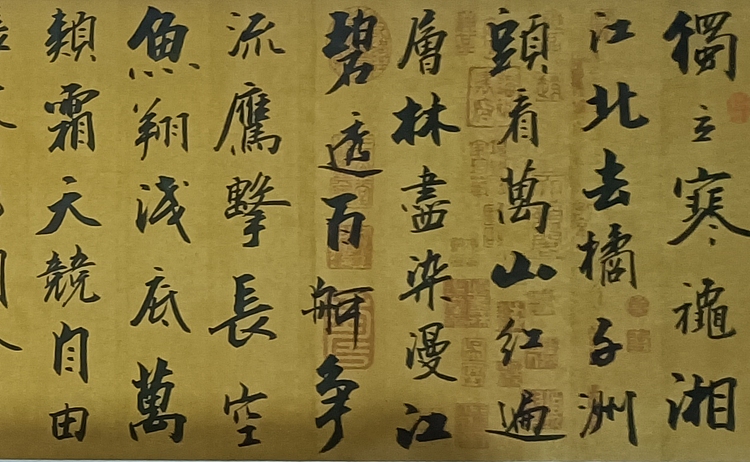 獨立寒穐湘
江北去橘子洲
頭看萬山红遍
層林盡染漫江
碧透百舸争
流鷹擊長空
魚翔浅底萬
類霜天競自由